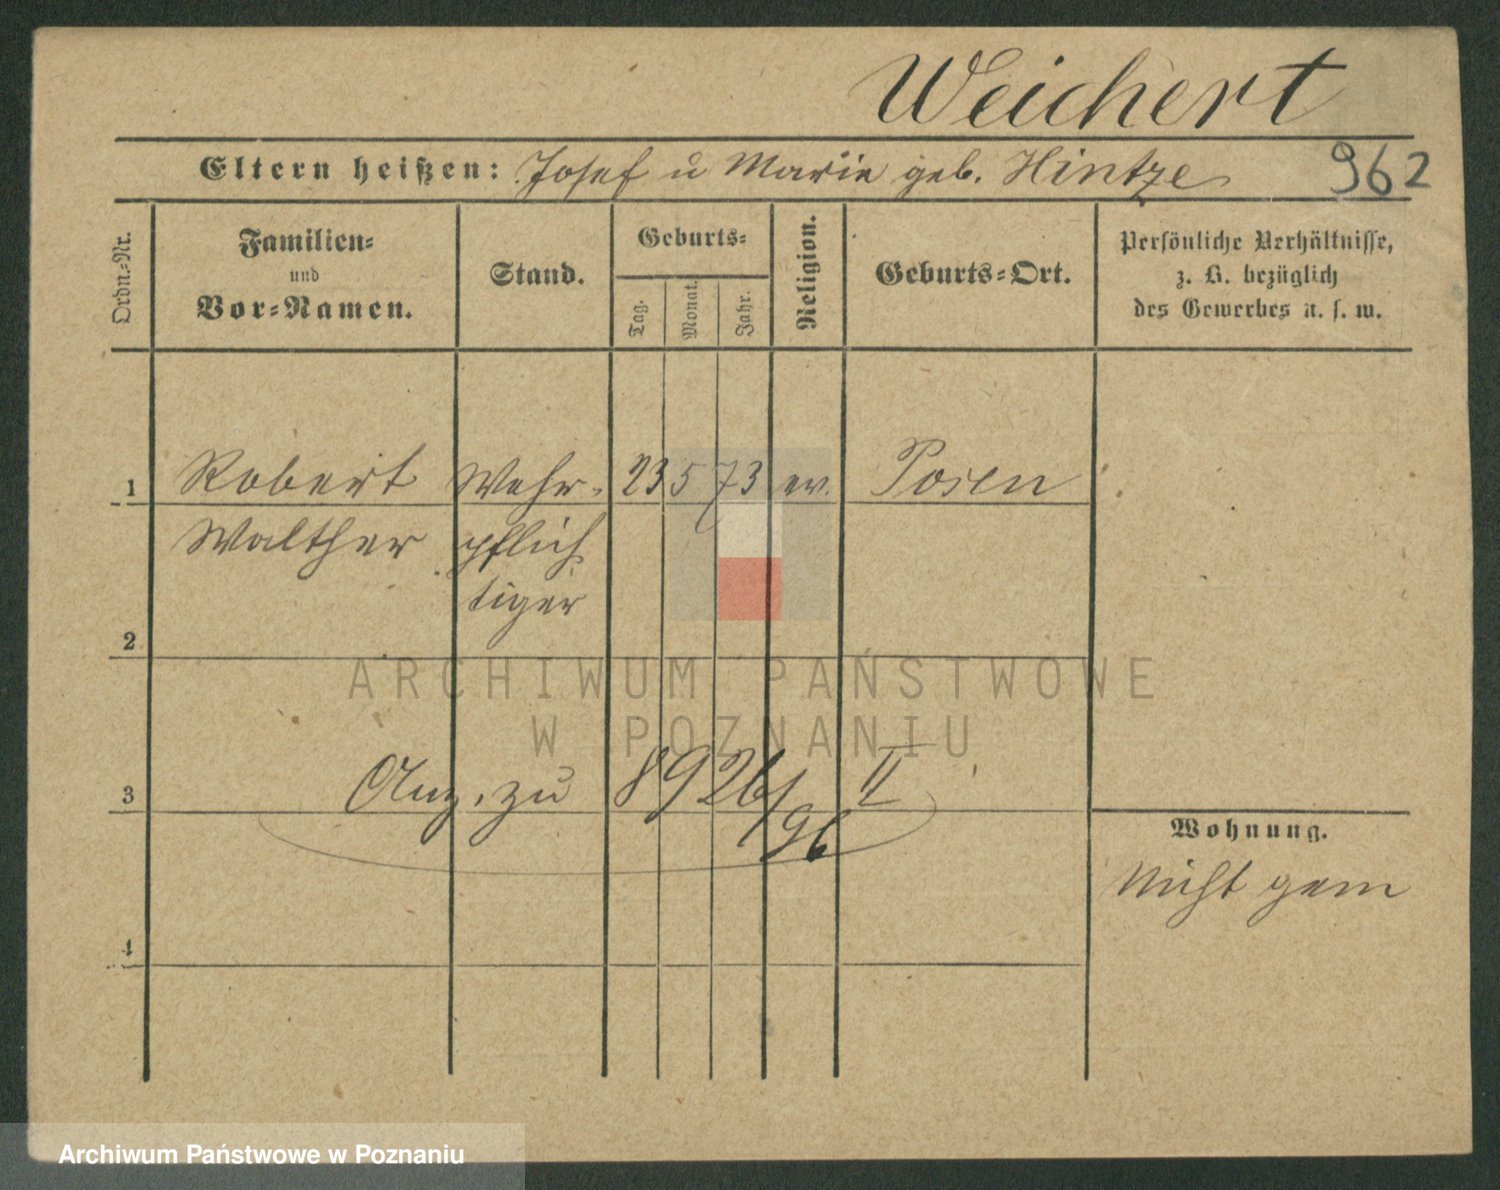 Weichert
Eltern heißen: Josef u Marie geb. Hintze
962
Ordn.-Nr.
Familien-
und
Vor-Namen.
Stand.
Geburts-
Tag.
Monat.
Jahr.
Religion.
Geburts-Ort.
Persönliche Verhältnisse,
z. B. bezüglich
des Gewerbes u. s. w.
1 Robert Wehr- 23 5 73 ev. Posen
Walther pflich
tiger
2
ARCHIWUM PAŃSTWOWE
W POZNANIU
3 Anz. zu 8926/96 II
Wohnung.
Nicht gem
4
Archiwum Państwowe w Poznaniu